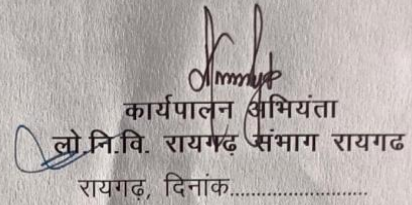 कार्यपालन अभियंता
लो.नि.वि. रायगढ़ संभाग रायगढ
रायगढ़, दिनांक........................